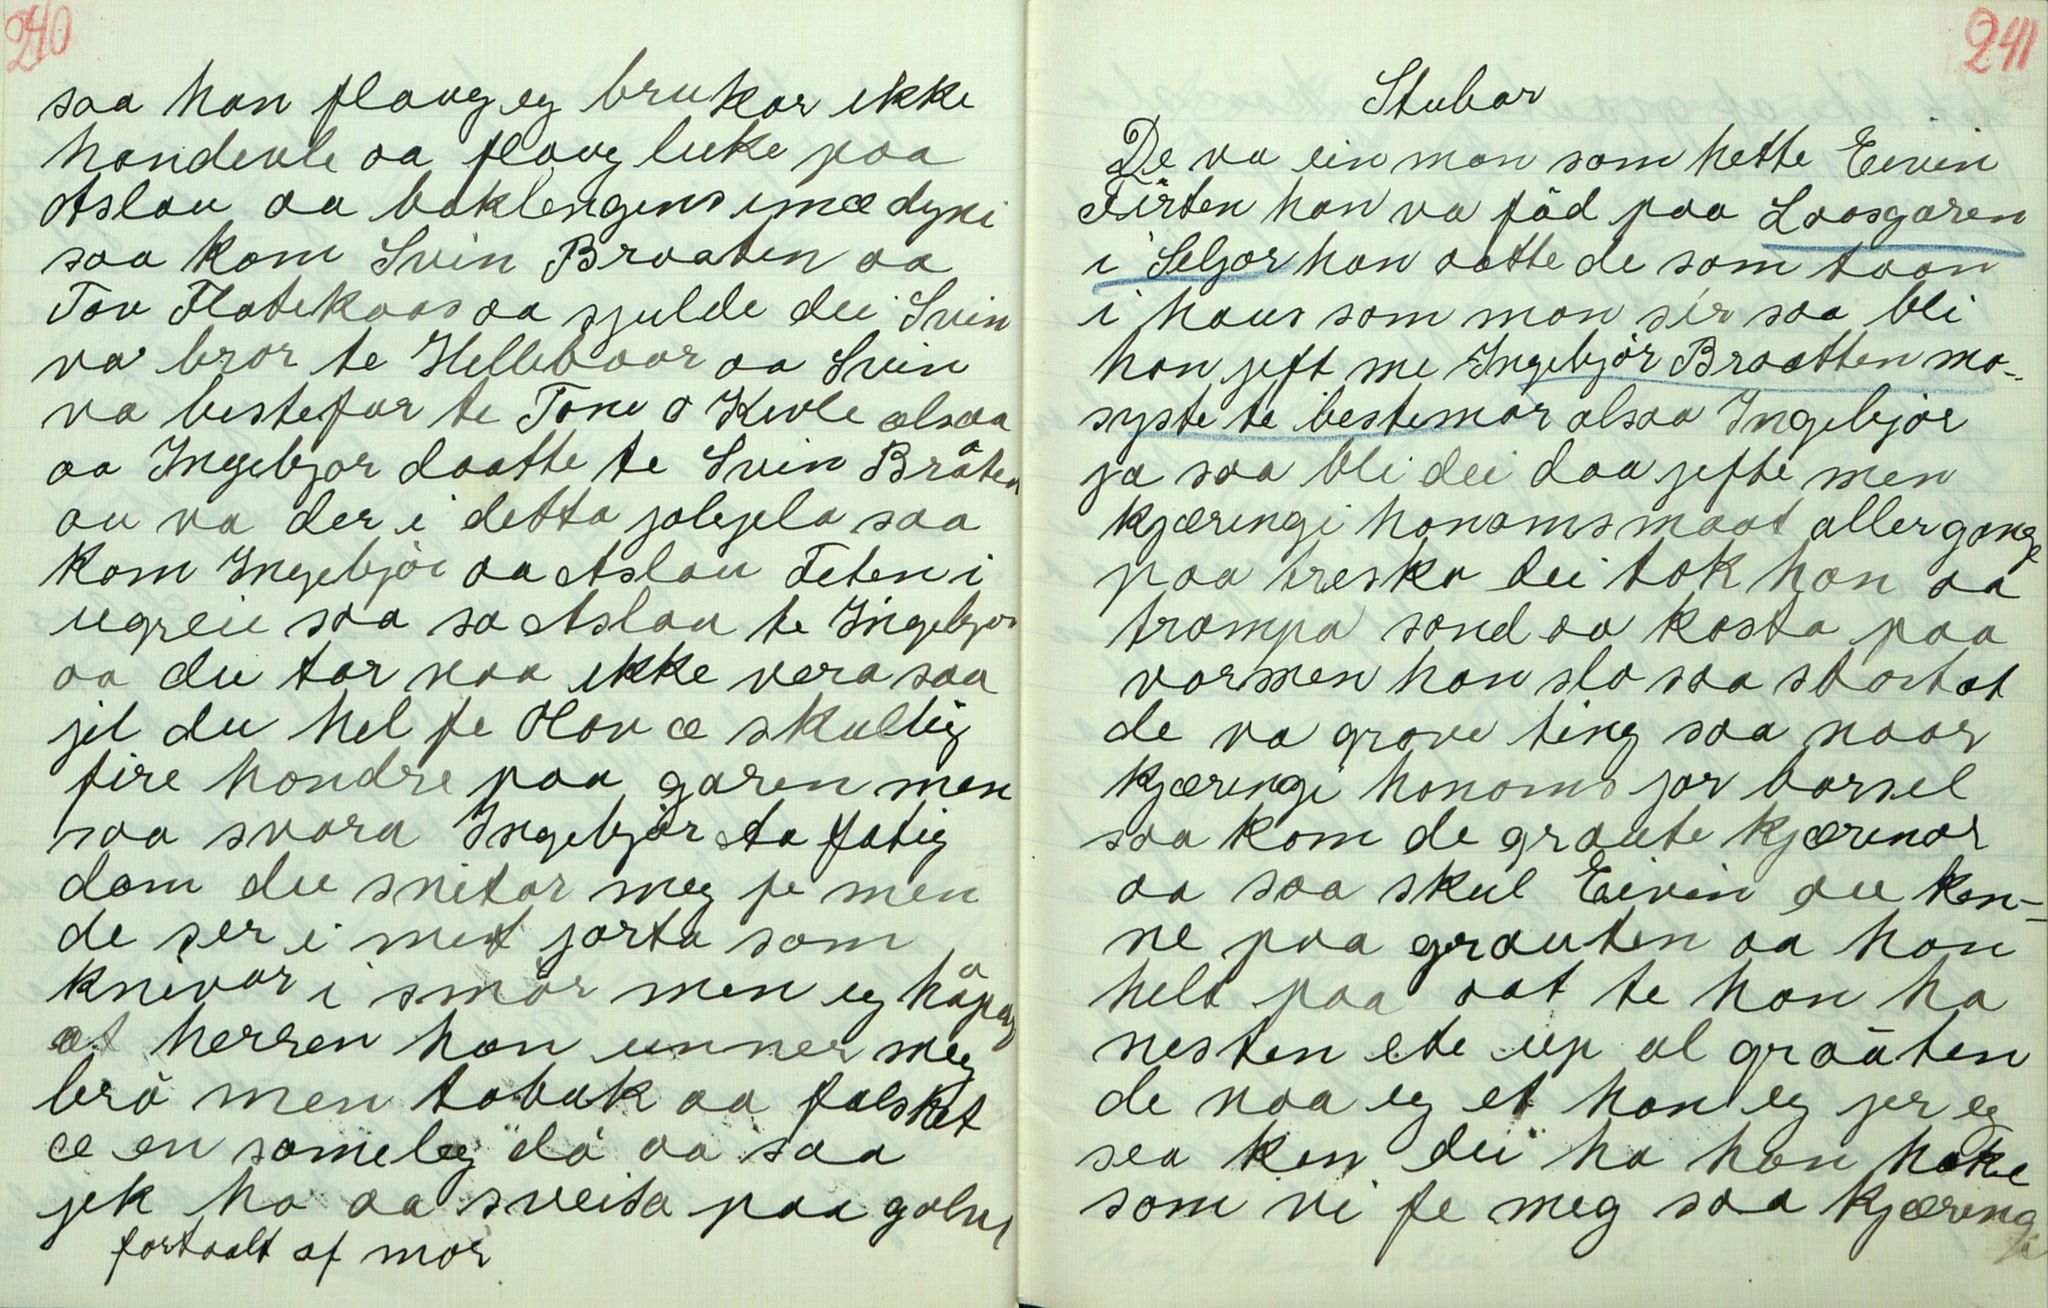 240
saa han flaug eg brukar ikke
handevle aa flaug luke paa
Aslau aa baklengens imæ dyni
saa kom Svein Braaten aa
Tov Flatekaas aa sjulde dei Svein
va bror te Hellebaar aa Svein
va bestefar te Tone o Kivle alsaa
aa Ingebjor daatte te Svein Bråten
au va der i detta jolejela saa
kom Ingebjör aa Aslau Teten i
ugreie saa sa Aslau te Ingebjor
aa du tar naa ikke vera saa
jil du hel fe Olav æ skuldig
fire hondre paa garen men
saa svara Ingebjör Aa fatig
dom du snitar meg fe men
de ser i mit jorta som
knivar i smör men eg håpar
at herren han unner meg
brö men tobak aa falsket
æ en someleg dö aa saa
jek ho aa sveisa paa golvet
fortaalt af mor
241
Stubar
De va ein man som hette Eivin
Tirten han va föd paa Laasgaren
i Seljor han aatte de som taan
i haus som man sir saa bli
han jeft me Ingebjör Braatten mo-
syste te bestemor alsaa Ingebjör
ja saa bli dei daa jefte men
kjæringi honoms maat aller gange
paa treska dei tok han aa
trampa sond aa kasta paa
varmen han slo saa stort at
de va grove ting saa naar
kjæringi honoms jor barsel
saa kom de graute kjæringar
aa saa skul Eivin au ken-
ne paa grauten aa han
helt paa aat te han ha
nesten ete up al graaten
de naa eg et han eg jer eg
sea kan dei ha han hake
som vi fe meg saa kjæringi